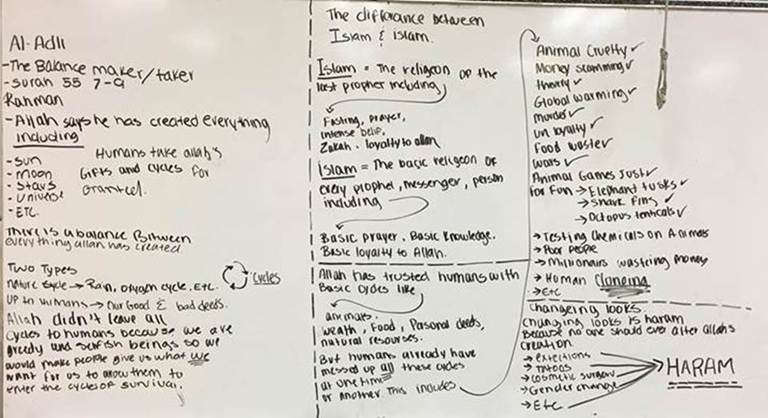 Al-Adli
-The Balance maker/taker
-Surah 55 7-9
Rahman
-Allah says he has created everything
including
-Sun
-Moon
-Stars
-Universe
-ETC.
Humans take allah's
Gifts and cycles for
Granted.
There is a balance Bitween
everything allah has created
Two Types
Nature Cycle → Rain, oxygen cycle, ETC.
Cycles
UP TO Humans → Our Good & bad deeds.
Allah didn't leave all
Cycles to humans because we are
greedy and selfish beings so we
would make people give us what we
want for us to allow them to
enter the cycle of survival.
The difference between
Islam & islam.
Islam = The religeon of the
last propher including
Fasting, Prayer,
intense
Zakah. loyalty to allah
Islam = The basic religeon of
every prophet, messenger, person
including
Basic prayer, Basic Knowledge.
Basic loyalty to Allah.
Allah has trusted humans with
Basic cycles like
animals,
wealth, Food, Pasonal deeds,
natural resourses.
But humans already have
messed up all these cycles
at one time
or another This includes
Animal Cruelty ✓
Money scamming ✓
theory ✓
Global warming ✓
murder ✓
un loyalty ✓
Food waster ✓
wars ✓
Animal Games Just ✓
for fun → Elephant tusks ✓
→ Shark fins ✓
→ Octopus tenticals ✓
→ Testing chemicals on Animals
→ Poor people
→ Millionairs wastering money
→ Human Cloneing
→ Etc
Changeing looks.
Changing looks is haram
Because no one should ever alter allah's
creation
→
→ Tattoos
→ Cosmetic surgery
→ Gender change
→ Etc
HARAM